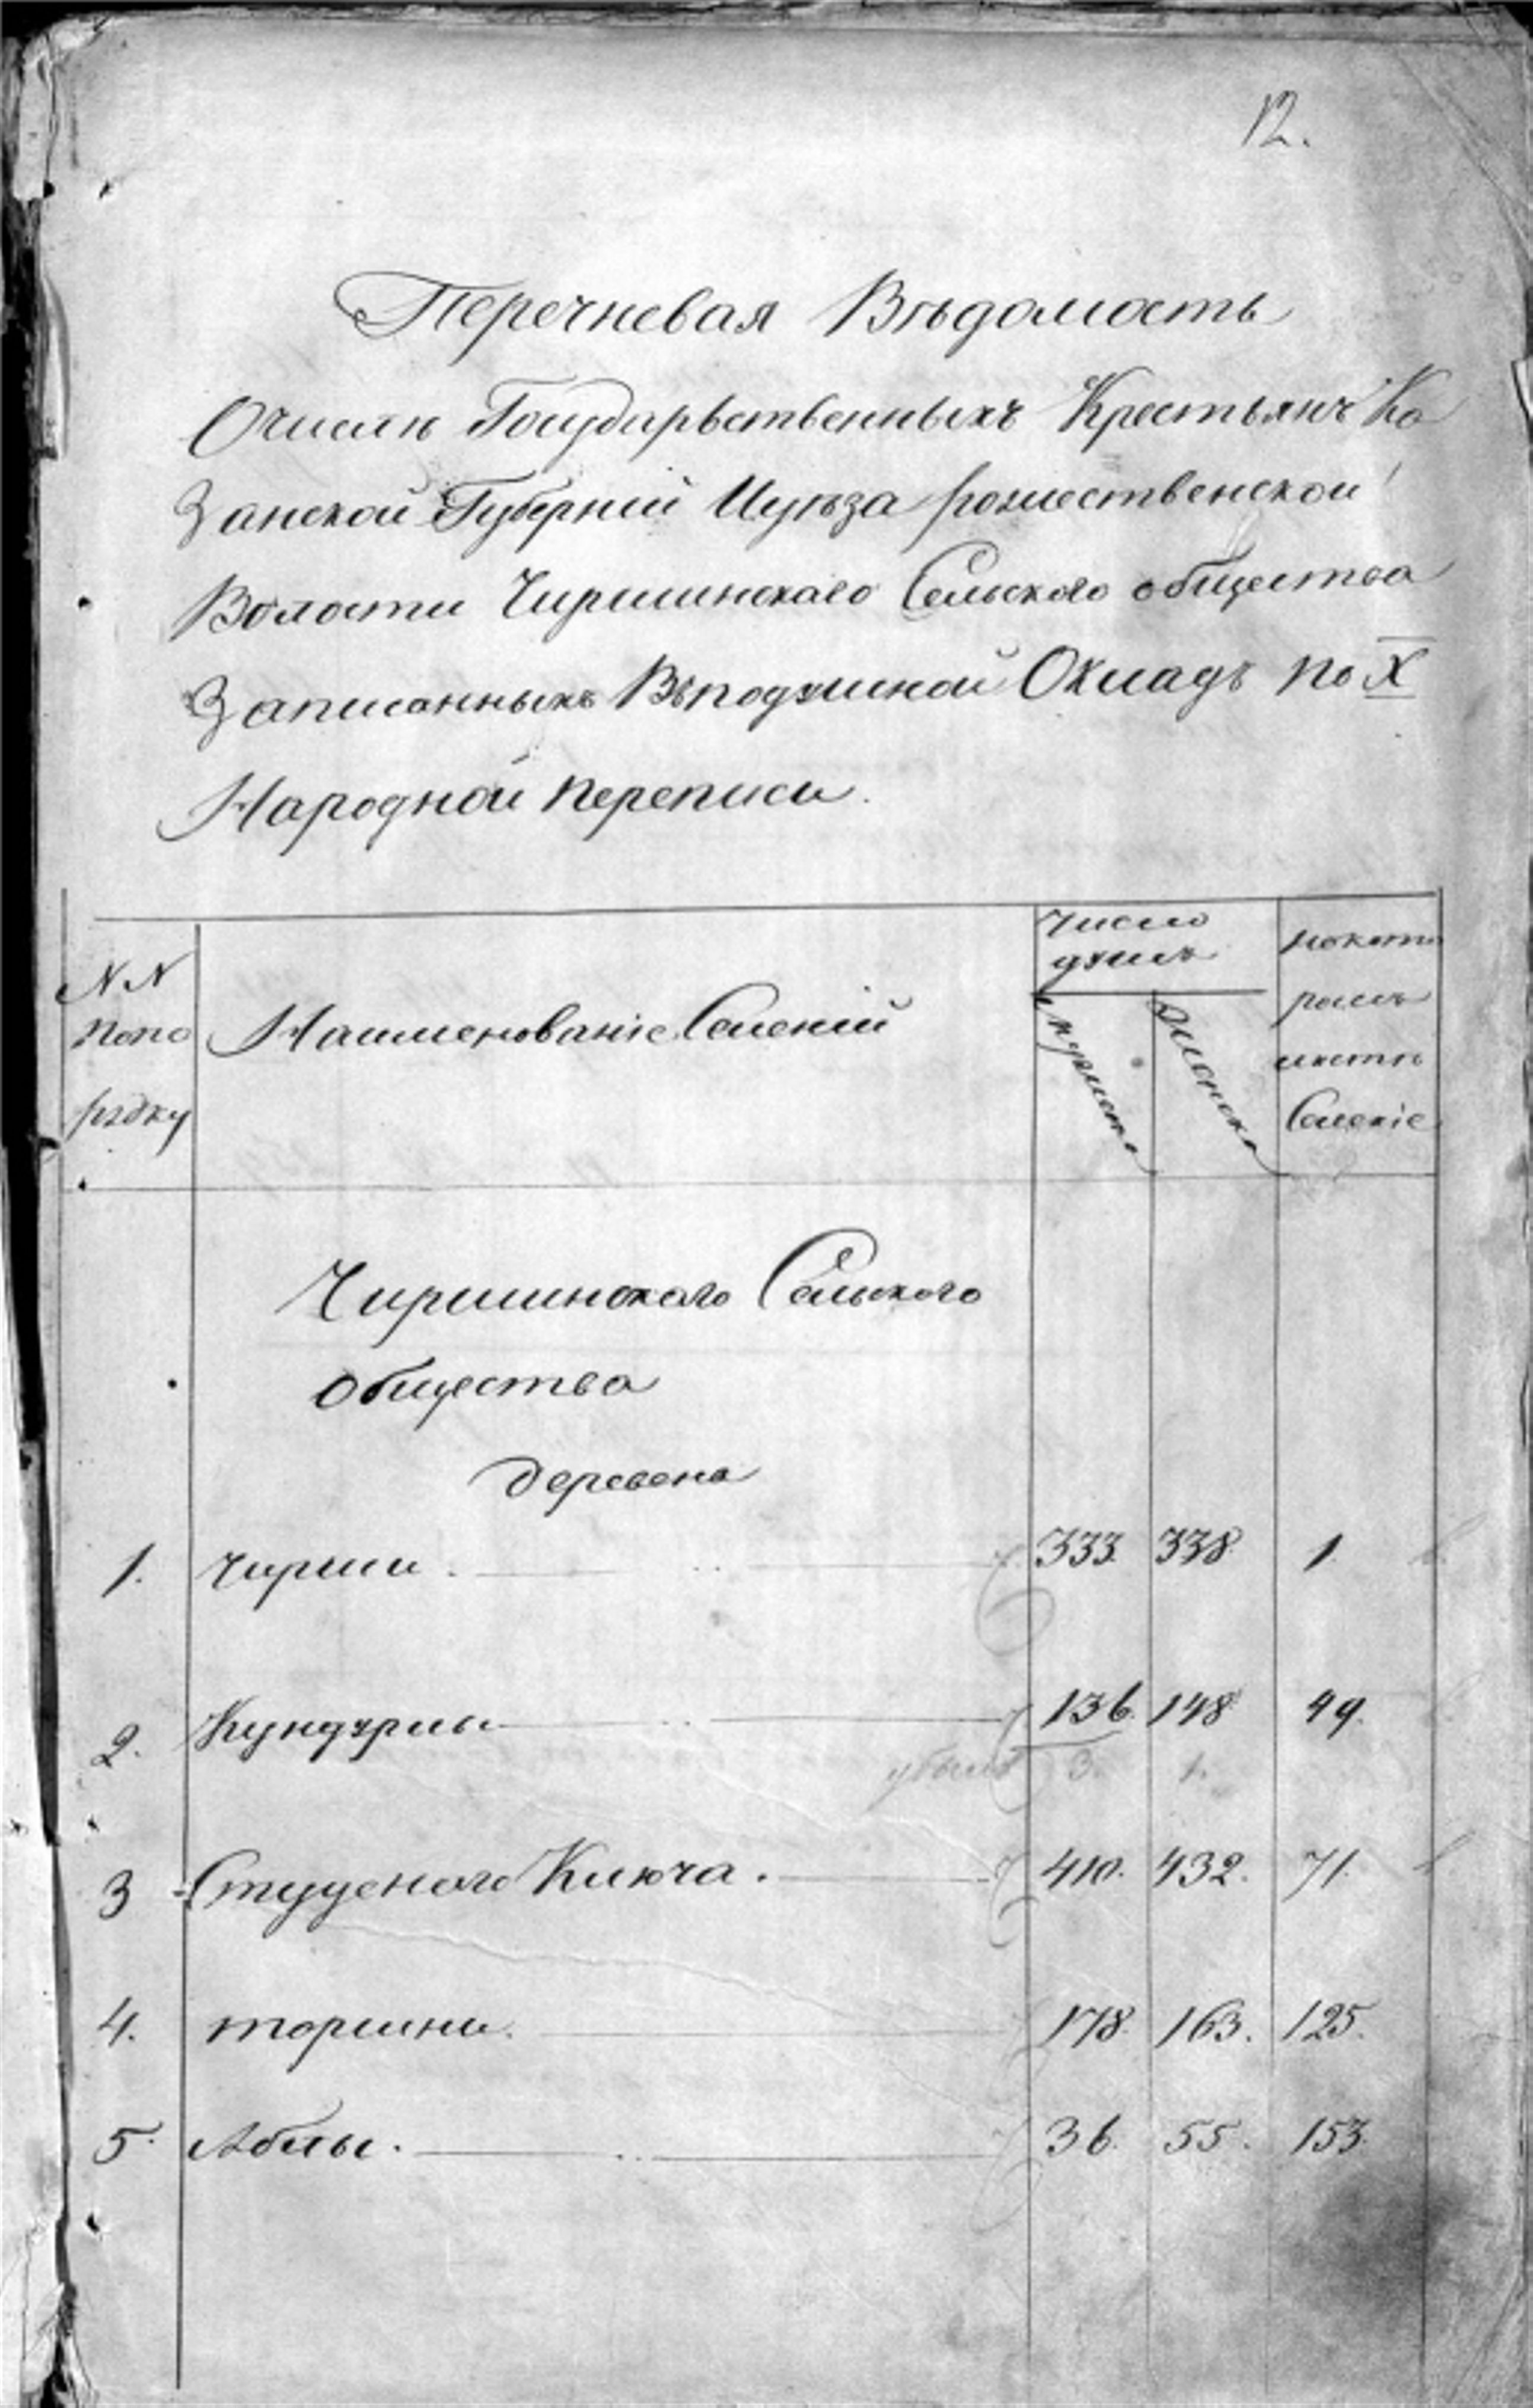 12.
Перечневая Вѣдомость
Очислѣ Государьственныхъ Крестьянъ Ка
Занской Губерніи Иуѣза рожественской
Волости Чиршинскаго Сельскаго общества
Записанныхъ Въподушной Окладъ по X
Народной переписи.
NN попо рядку
Наименованіе Селеній
Число душъ
мужеска
женска
покото ромъ листѣ Селеніе
Чиршинскаго Сельскаго
общества
деревень
1. Чирши. 333. 338. 1
2. Кундурлы 136. 148. 49.
убыло 3. 1.
3 Студенаго Ключа. 410. 432. 71.
4. торшни. 178. 163. 125.
5. Аблы. 36. 55. 153.